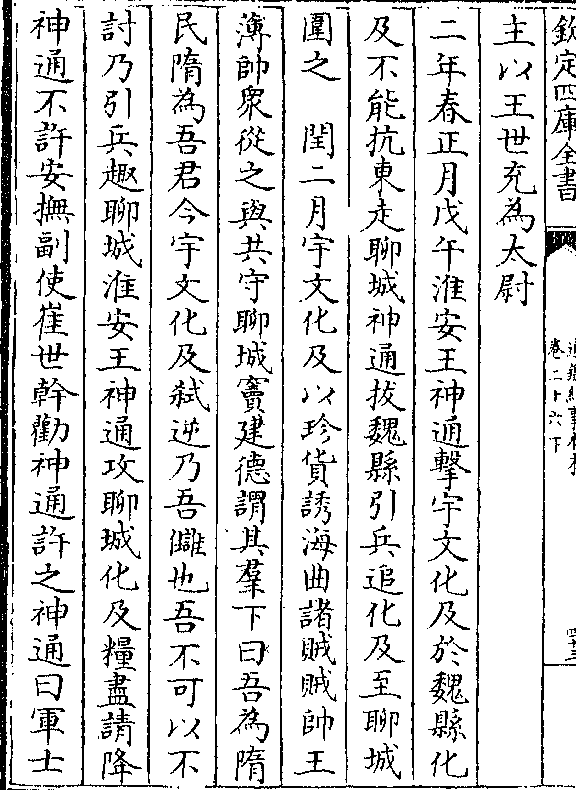 欽定四庫全書
卷二十六下
主以王世充為太尉
二年春正月戊午淮安王神通擊宇文化及於魏縣化
及不能抗東走聊城神通拔魏縣引兵追化及至聊城
圍之　閏二月宇文化及以珍貨誘海曲諸賊賊帥王
薄帥衆從之與共守聊城竇建德謂其羣下曰吾為隋
民隋為吾君今宇文化及弑逆乃吾讎也吾不可以不
討乃引兵趣聊城淮安王神通攻聊城化及糧盡請降
神通不許安撫副使崔世幹勸神通許之神通曰軍士